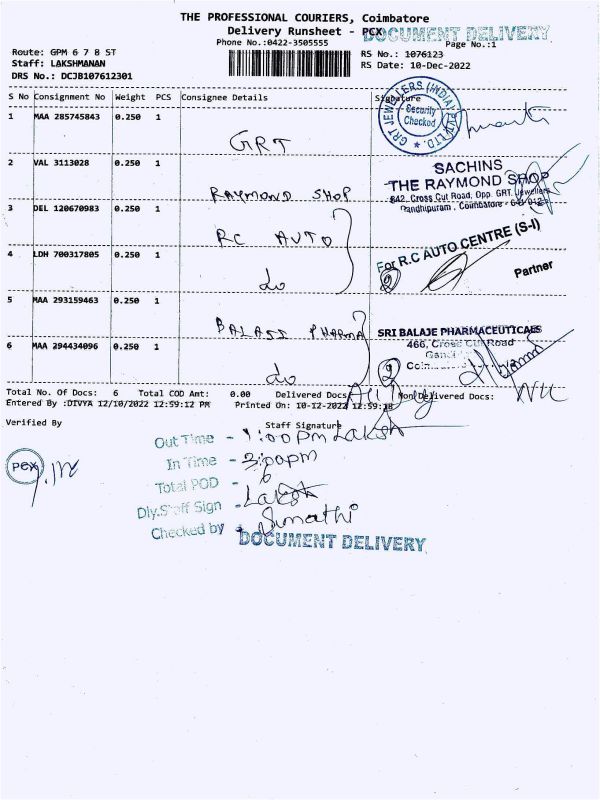 THE PROFESSIONAL COURIERS, Coimbatore
Delivery Runsheet - PCX
DOCUMENT DELIVERY
Phone No.:0422-3505555
Page No.:1
Route: GPM 6 7 8 ST
RS No.: 1076123
Staff: LAKSHMANAN
RS Date: 10-Dec-2022
DRS No.: DCJB107612301
S No Consignment No Weight PCS Consignee Details Signature
1 MAA 285745843 0.250 1
GRT
GRT JEWELLERS (INDIA) PVT LTD.
Security
Checked
2 VAL 3113028 0.250 1
RAYMOND SHOP
SACHINS
THE RAYMOND SHOP
842, Cross Cut Road, Opp. GRT. Jewellers
Gandhipuram, Coimbatore - 641 012
3 DEL 120670983 0.250 1
RC AUTO
For R.C AUTO CENTRE (S-I)
Partner
4 LDH 700317805 0.250 1
do
2
5 MAA 293159463 0.250 1
BALAJI PHARMA
SRI BALAJE PHARMACEUTICAES
466, Cross Cut Road
6 MAA 294434096 0.250 1
do
2
Total No. Of Docs: 6 Total COD Amt: 0.00 Delivered Docs: Non Delivered Docs: Nil
Entered By :DIVYA 12/10/2022 12:59:12 PM Printed On: 10-12-2022 12:59:18
Verified By
Staff Signature
PCX
Out Time - 1:00pm Laksh
In Time - 3:00pm
Total POD - 6
Dly.Staff Sign - Laksh
Checked by - Sumathi
DOCUMENT DELIVERY